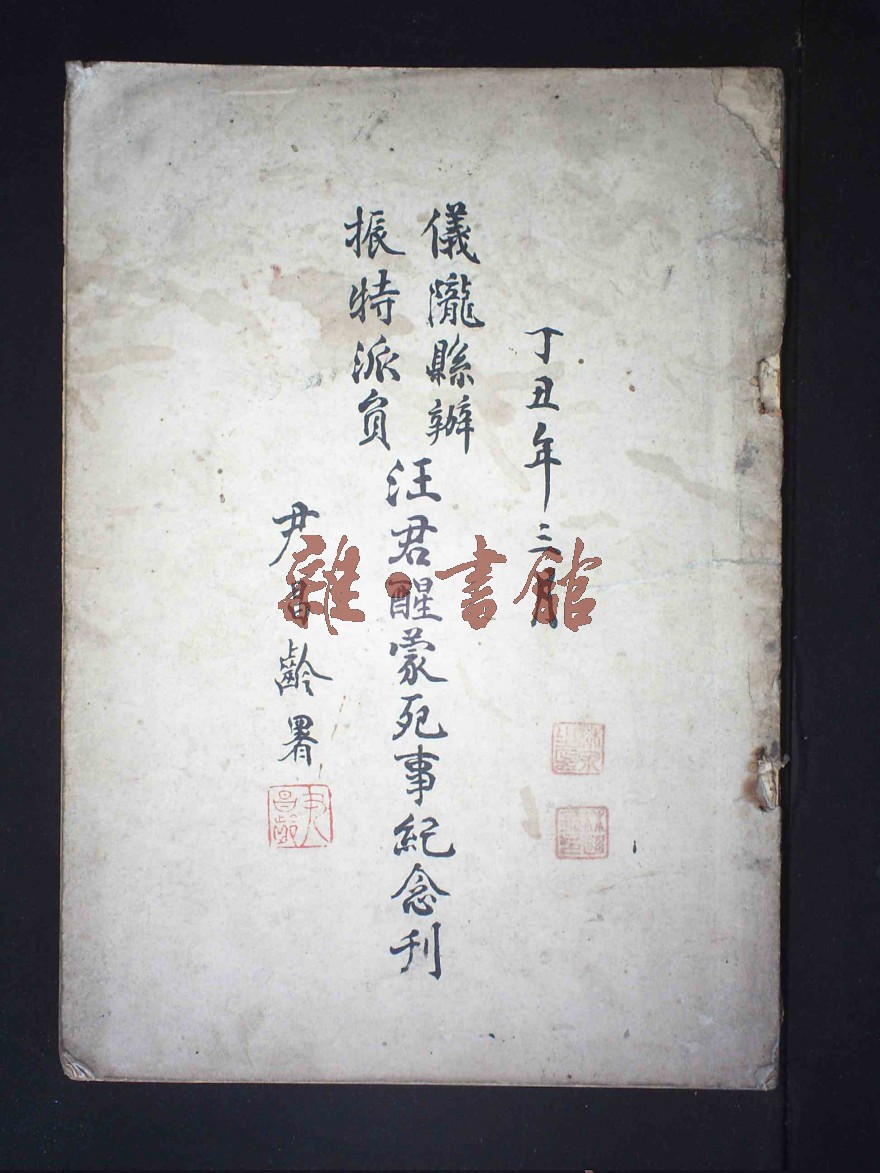 丁丑年三月
儀隴縣辦
振特派員
汪君醒蒙死事紀念刊
尹昌齡署
尹昌齡
雜·書館